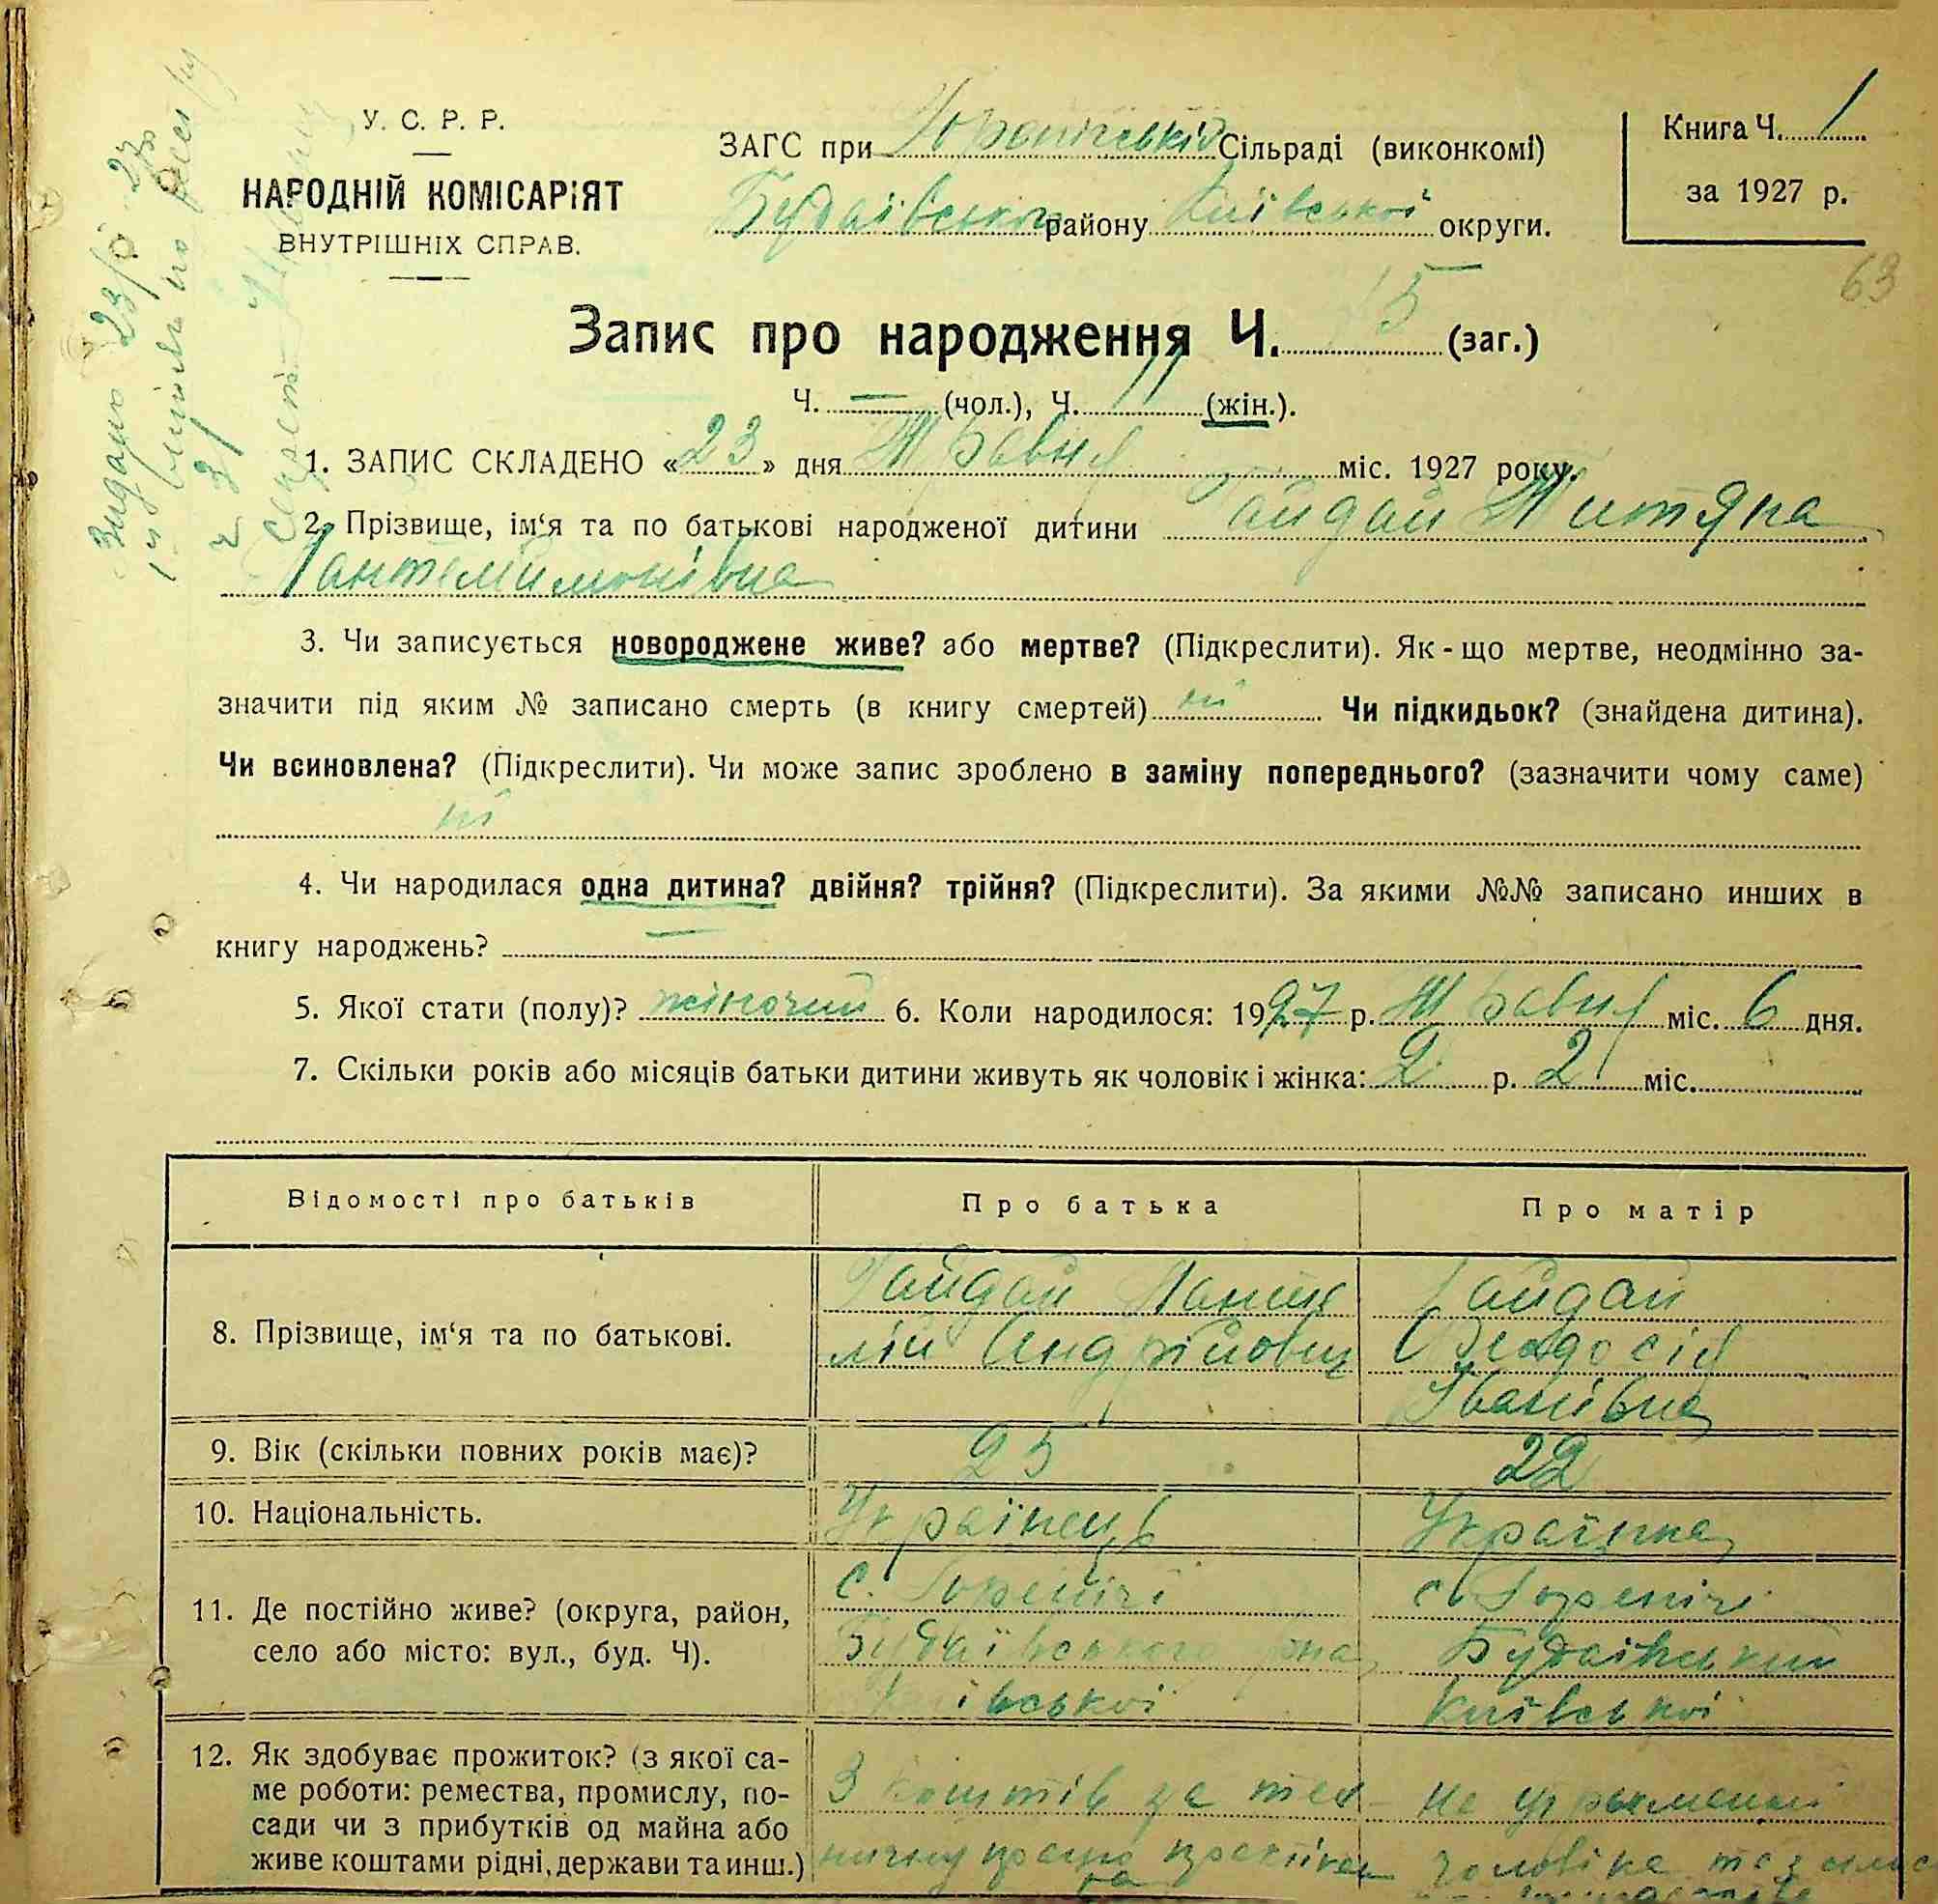 У. С. Р. Р.
НАРОДНІЙ КОМІСАРІЯТ
ВНУТРІШНІХ СПРАВ.
ЗАГС при Сільраді (виконкомі)
Будаївського району Київської округи.
Книга Ч. 1
за 1927 р.
63
Запис про народження Ч. 15 (заг.)
Ч. — (чол.), Ч. 11 (жін.).
1. ЗАПИС СКЛАДЕНО «23» дня Травня міс. 1927 року.
2. Прізвище, ім‘я та по батькові народженої дитини Гайдай
3. Чи записується новороджене живе? або мертве? (Підкреслити). Як - що мертве, неодмінно за-
значити під яким № записано смерть (в книгу смертей) ні Чи підкидьок? (знайдена дитина).
Чи всиновлена? (Підкреслити). Чи може запис зроблено в заміну попереднього? (зазначити чому саме)
ні
4. Чи народилася одна дитина? двійня? трійня? (Підкреслити). За якими №№ записано инших в
книгу народжень? —
5. Якої стати (полу)? жіночий 6. Коли народилося: 1927 р. Травня міс. 6 дня.
7. Скільки років або місяців батьки дитини живуть як чоловік і жінка: 2 р. 2 міс.
Відомості про батьків Про батька Про матір
8. Прізвище, ім‘я та по батькові.
Гайдай
Андрійович
Гайдай
Феодосія
Іванівна
9. Вік (скільки повних років має)? 25 22
10. Національність. Українець Українка
11. Де постійно живе? (округа, район,
село або місто: вул., буд. Ч).
с. Горенічі
Будаївського
Київської
с. Горенічі
Київської
12. Як здобуває прожиток? (з якої са-
ме роботи: ремества, промислу, по-
сади чи з прибутків од майна або
живе коштами рідні, держави та инш.)
З коштів за
на
чоловіка